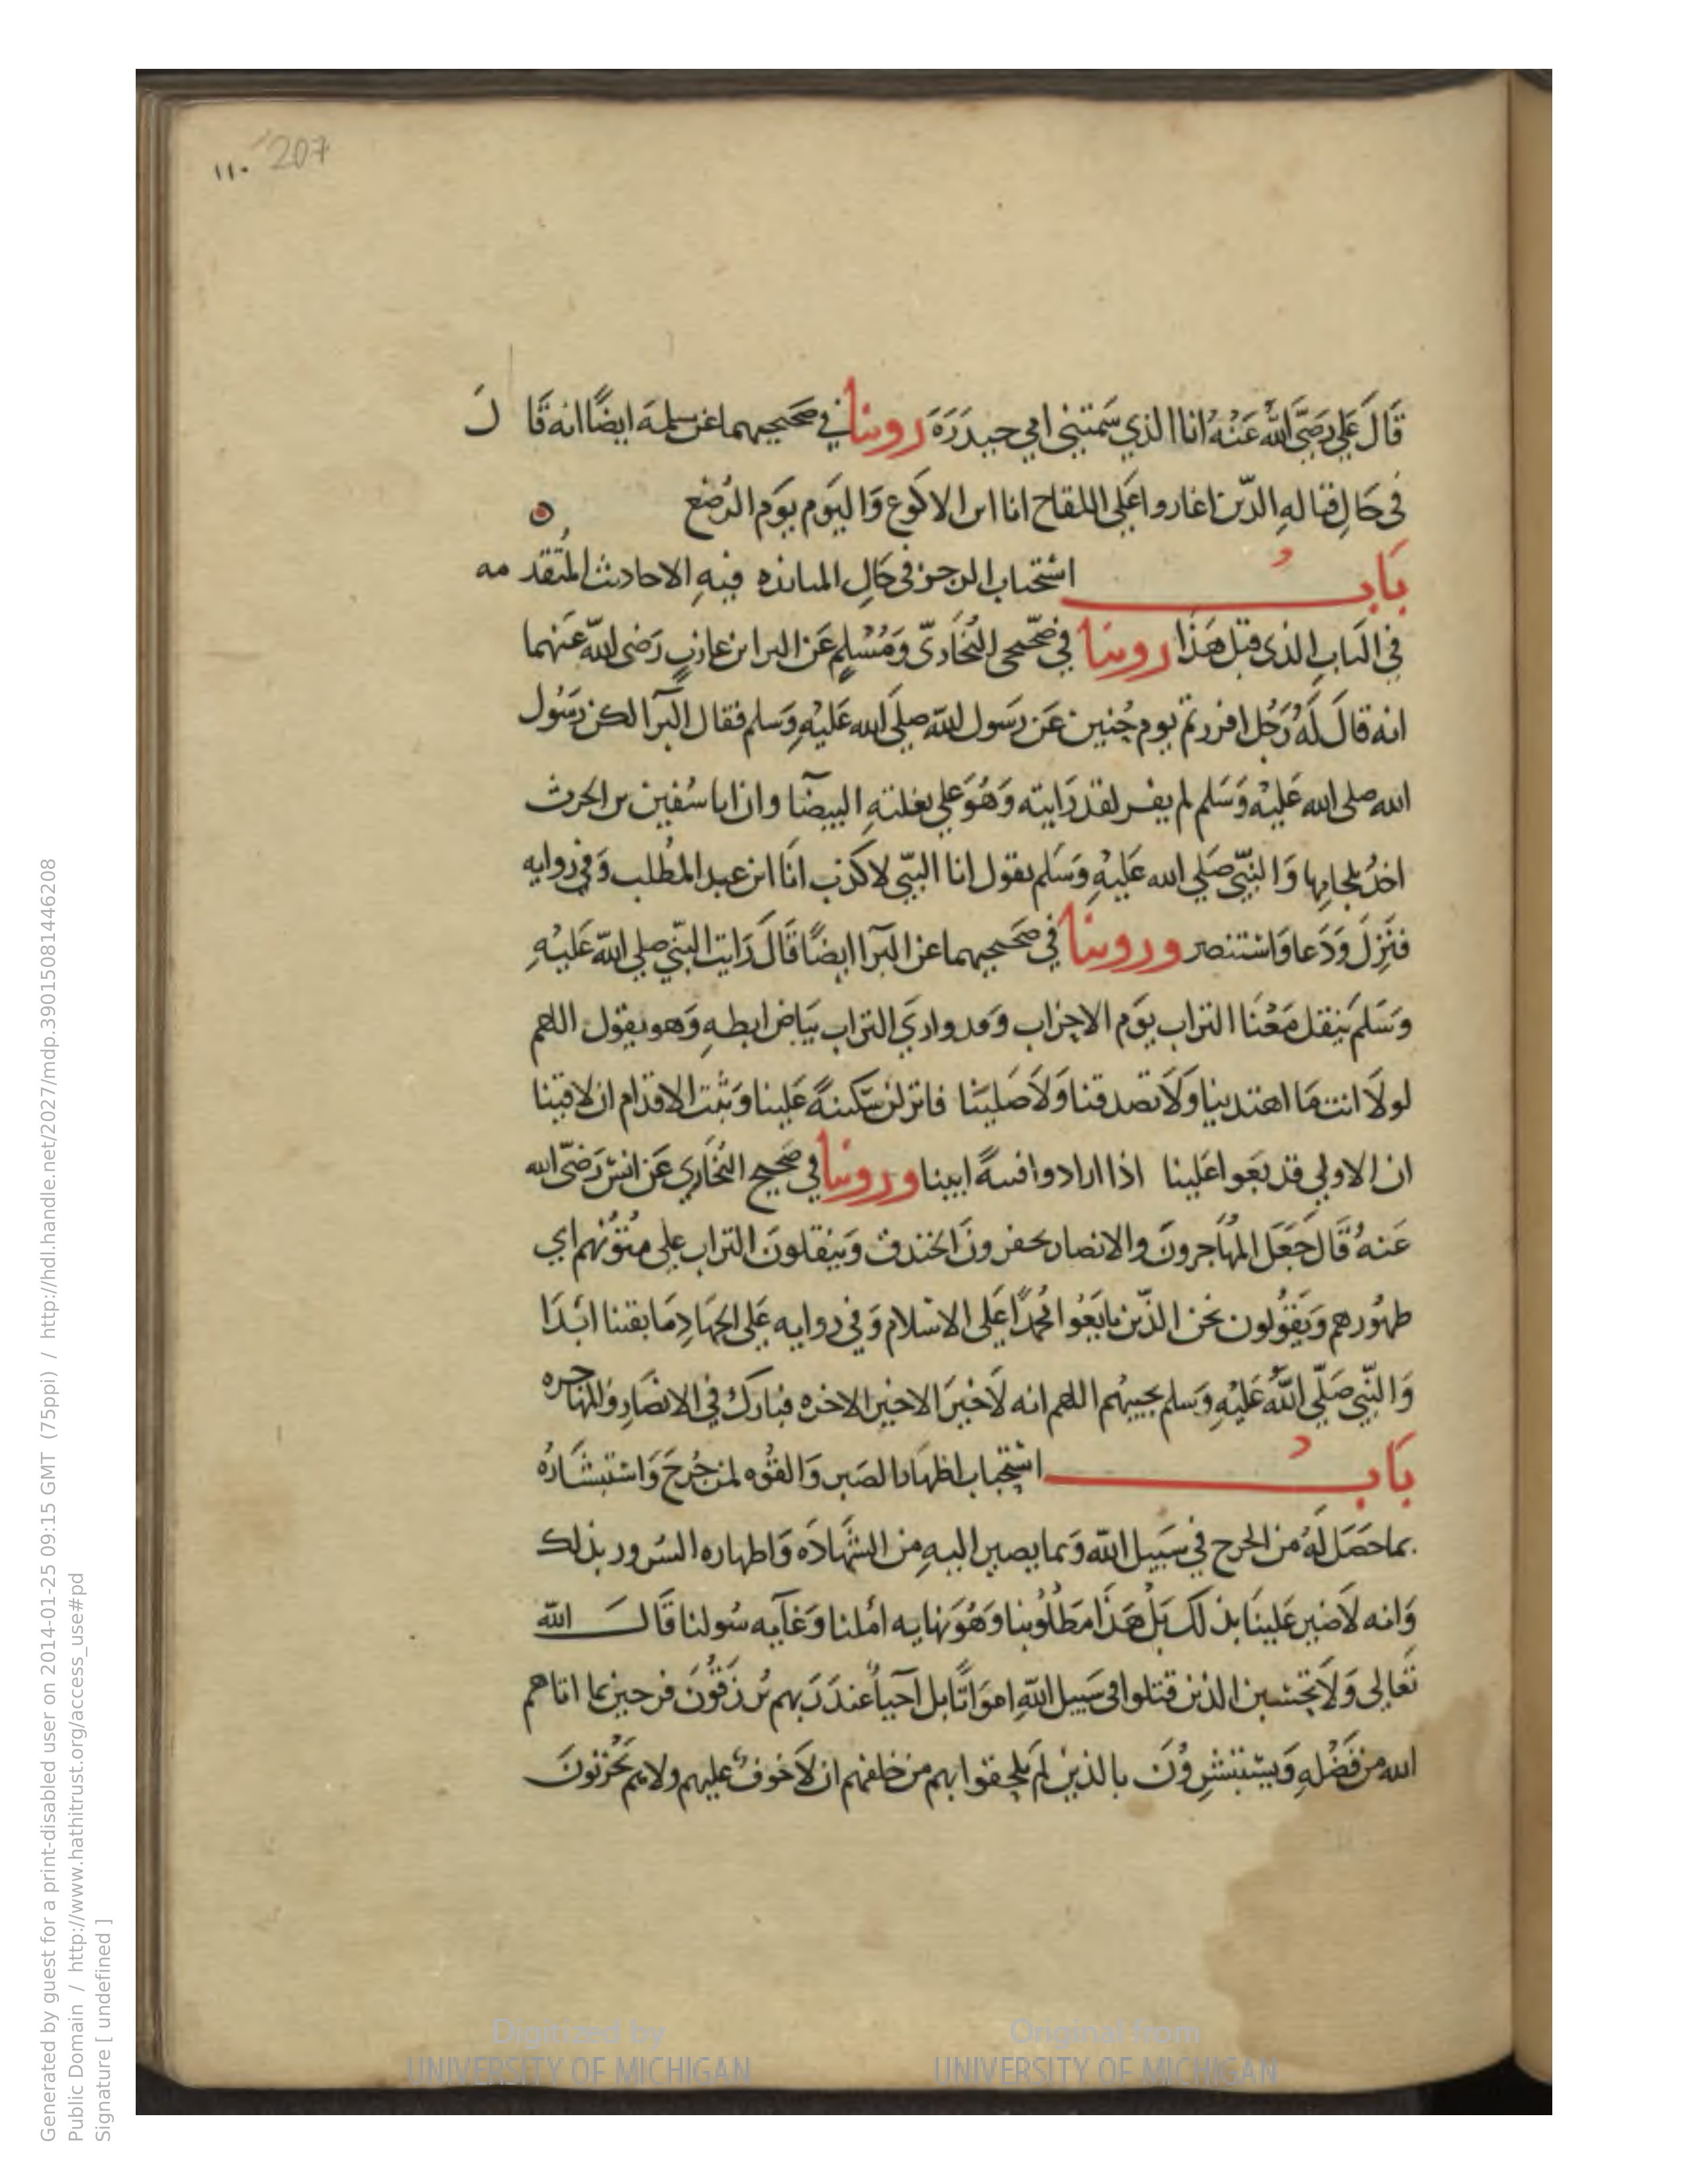 207
١١٠
قَالَ عَلي رَضَيَّ اللَّه عَنْهُ انا الذي سَمتني امي حيدَرَهَ روينا في صَحيحيهما عن سلمهَ ايضًا انه قَا لَ
في حَالِ قتالهِ الذّين اغاروا عَلى اللقاح انا ابن الاكوَع وَاليَوم يوَم الرُضع
بَابُ استحَباب الرجز في حَالِ المبارزه فيهِ الاحاديث المُتقد مه
في البَابِ الذي قبل هَذَا روينا في صَحَيحي البُخَاريّ وَمُسْلمٍ عَن البرا بن عازبٍ رَضى اللّه عَنهما
انه قالَ لَهُ رَجُل افررتم يوم حُنين عَن رسَول اللّه صلى الله عَليْهِ وَسلم فقال البَرآ لكن رسَوُل
الله صلى الله عَليْه وَسَلم لم يفر لقد رَايته وَهُوَ علي بغلتهِ البيضآ وان ابا سُفين بن الحرث
اخذُ بلجامِها وَالنبّي صَلي الله عَليْهِ وَسَلم يقول انا النبّي لا كذب انَا ابن عبد المطُلب وَفي روايه
فنَزِلَ وَدَعا وَاستنصر وروينا في صَحيحيهما عن البَرآ ايضًا قَالَ رَايت النبّي صلى اللّه عَليْهِ
وَسَلم يَنقل مَعَنَا التراب يوَم الاحزاب وَقد واري التراب بَيَاض ابطهِ وَهو يقول اللهم
لولَا انت مَا اهتدينا وَلَا تصدقنا وَلَا صَليَنا فانزلن سَكينهً عَلينا وَثبت الاقدَام ان لاقينا
ان الاولي قد بَغوا عَلينا اذا ارادوا فتنهً ابينا وروينا في صَحيح البُخاري عَن انسٍ رَضيّ الله
عَنهُ قَالَ جَعَل المهُاجرونَ والانصار يحفرونَ الخندق وَينقلونَ التراب علي متوُنهم اي
ظهوُرهم وَيَقوُلون نحن الذّين بايَعُوا مُحمّدًا عَلى الاسْلام وَفي روايه عَلى الجهَادِ مَا بقينا ابَدَا
وَالنبّي صَلّي اللَّهُ عَليْهِ وَسلم يجيبهُم اللهم انه لَا خيَر الا خير الاخره فبَارك في الانصَارِ وَالمهاجره
بَابُ استحَباب اظهَار الصَبر وَالقوُه لمن جُرحَ وَاستبشَارُه
بماحَصَل لَهُ من الجرح في سَبيل اللّه وَبما يصير اليهِ من الشَهادَه وَاظهاره السُرور بذلك
وَانه لَا ضير عَلينَا بذلك بَلْ هَذَا مَطلُوبنا وَهُوَ نهايه امَلنا وَغَآيه سُولنا قَالَ اللّه
تعَالى وَلَا تحسَبن الذين قتلوا في سَبيل اللّهِ امَوَاتًا بل احَيآءُ عندَ رَبهم يُرزَقُونَ فرحين بما اتاهم
الله من فَضْلهِ وَيسَتبْشِروُنَ بالذين لَم يَلحقوا بهم من خلفهم ان لَا خوفُ عليهم ولا هم يَحُزنونَ
Generated by guest for a print-disabled user on 2014-01-25 09:15 GMT (75ppi) / http://hdl.handle.net/2027/mdp.39015081446208
Public Domain / http://www.hathitrust.org/access_use#pd
Signature [ undefined ]
Digitized by
UNIVERSITY OF MICHIGAN
Original from
UNIVERSITY OF MICHIGAN